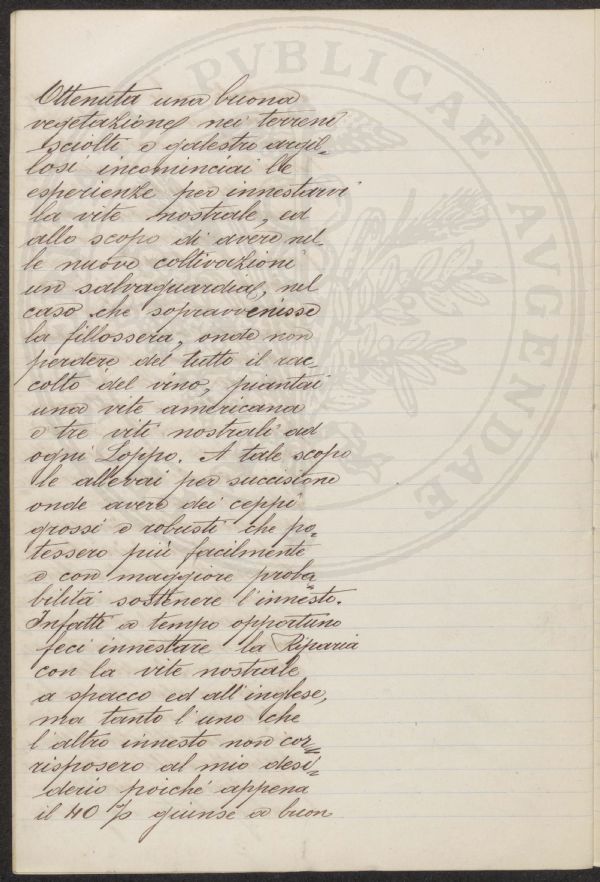 Ottenuta una buona
vegetazione nei terreni
sciolti e galestro argil-
losi incominciai le
esperienze per innestarvi
la vite nostrale, ed
allo scopo di avere nel-
le nuove coltivazioni
un salvaguardia, nel
caso che sopravvenisse
la fillossera, onde non
perdere del tutto il rac-
colto del vino, piantai
una vite americana
e tre viti nostrali ad
ogni Loppo. A tale scopo
le allevai per succisione
onde avere dei ceppi
grossi e robusti che po-
tessero più facilmente
e con maggiore proba-
bilità sostenere l'innesto.
Infatti a tempo opportuno
feci innestare la Riparia
con la vite nostrale
a spacco ed all'inglese,
ma tanto l'uno che
l'altro innesto non cor-
risposero al mio desi-
derio poiché appena
il 40 % giunse a buon
PVBLICAE AVGENDAE